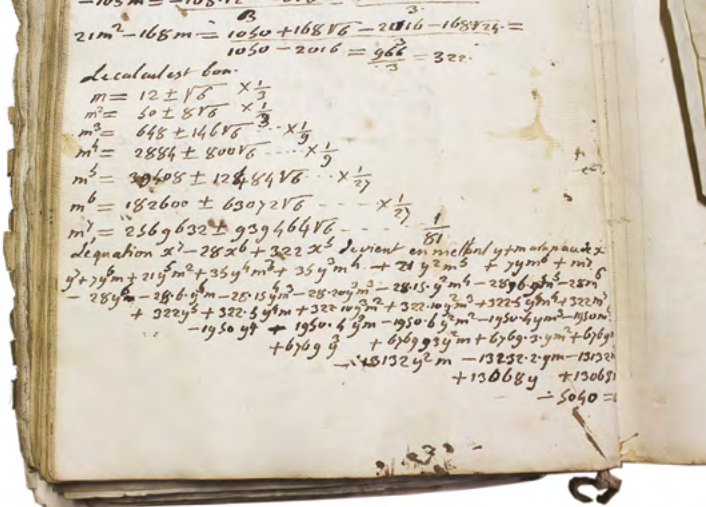 21m² - 168m = 1050 + 168√6 - 2016 - 168√24 =
3
1050 - 2016 = 966/3 = 322.
Le calcul est bon.
m = 12 ± √6 × 1/3
m² = 50 ± 8√6 × 1/3
m³ = 648 ± 146√6 ... × 1/9
m⁴ = 2884 ± 800√6 ... × 1/9
m⁵ = 39408 ± 12484√6 ... × 1/27
m⁶ = 182600 ± 63072√6 ... × 1/27
m⁷ = 2569632 ± 939464√6 ... 1/81
L'équation x⁷ - 28x⁶ + 322x⁵ devient en mettant y+m
y⁷ + 7y⁶m + 21y⁵m² + 35y⁴m³ + 35y³m⁴ + 21y²m⁵ + 7ym⁶ + m⁷
- 28y⁶ - 28·6·y⁵m - 28·15y⁴m² - 28·20y³m³ - 28·15·y²m⁴ - 28·6·ym⁵ - 28m⁶
+ 322y⁵ + 322·5y⁴m + 322·10y³m² + 322·10y²m³ + 322·5ym⁴ + 322m⁵
- 1950y⁴ + 1950·4y³m - 1950·6y²m² - 1950·4ym³ - 1950m⁴
+ 6769y³ + 6769 y²m + 6769·3·ym² + 6769
- 13132y²m - 13232·2·ym - 13132
+ 13068y + 13068
- 5040 =